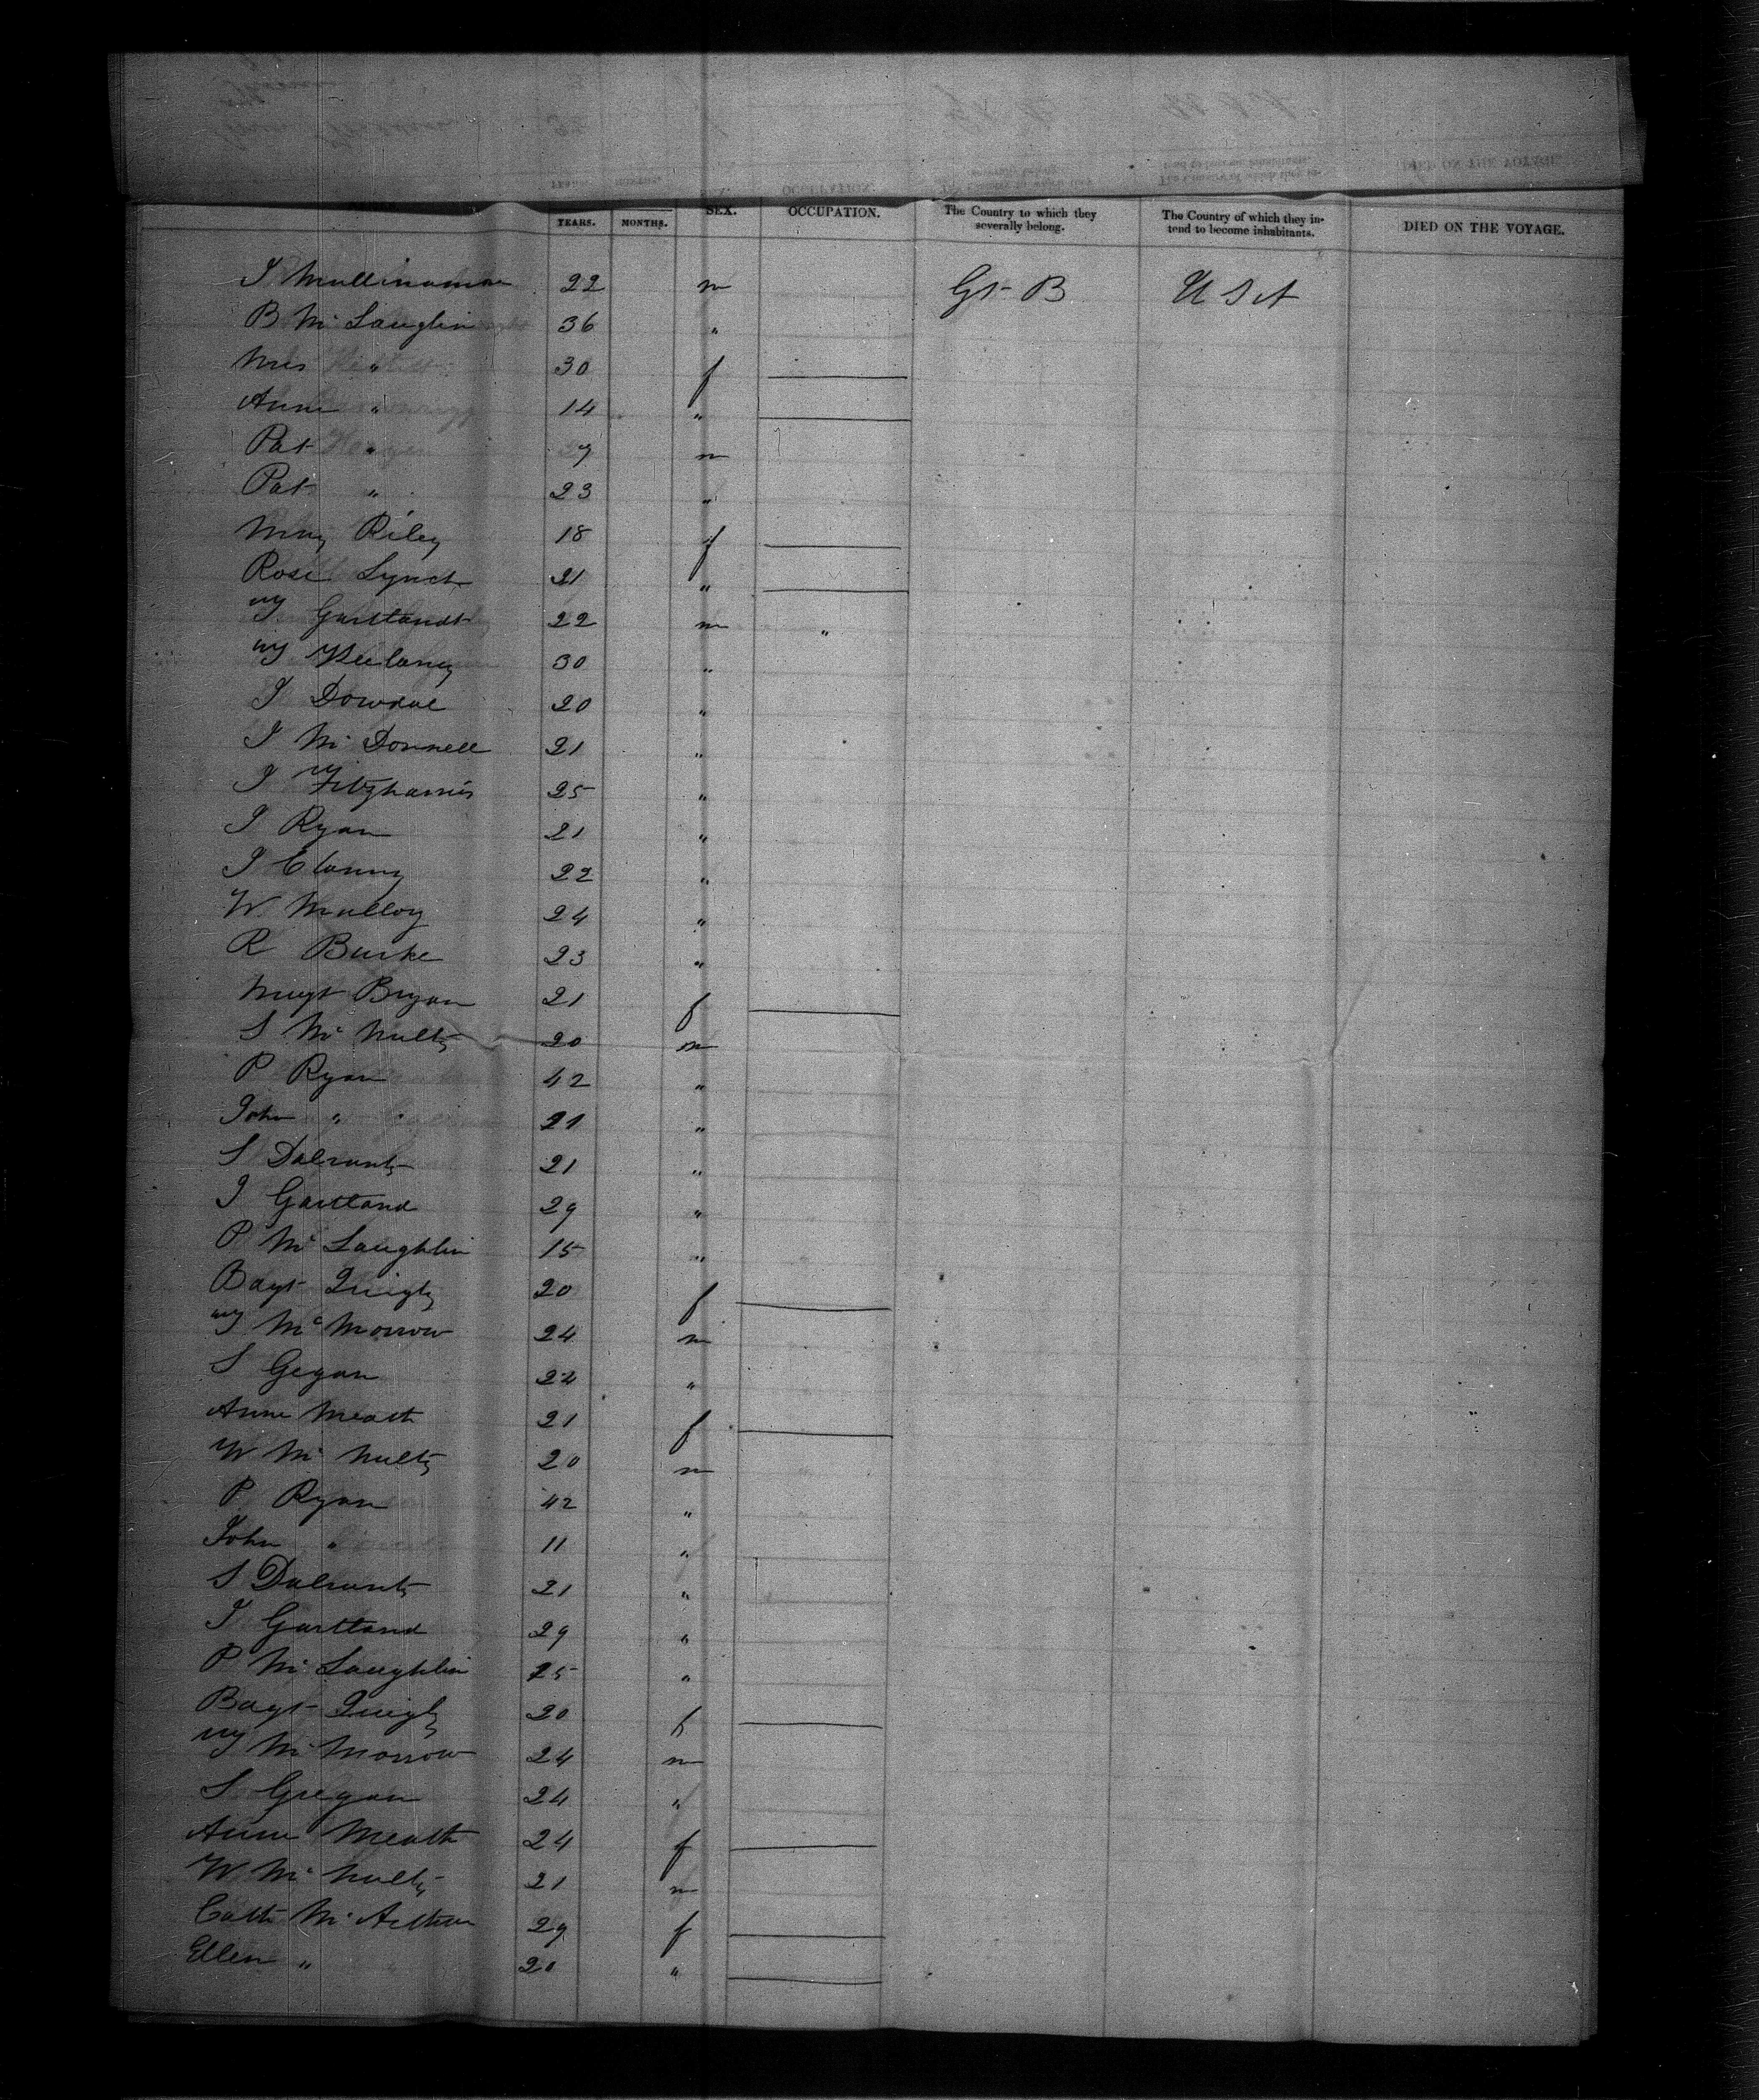 YEARS. MONTHS. SEX. OCCUPATION. The Country to which they severally belong. The Country of which they intend to become inhabitants. DIED ON THE VOYAGE.
J 22 m Gt B U S A
B Mc Lauglin 36 "
Mrs " 30 f
Anne " 14 "
Pat " 7 m
Pat " 23 "
Mary Riley 18 f
Rose Lynch 21 "
M Gartlandt 22 m "
M 30 "
J Dowdal 20 "
J Mc Donnell 21 "
J Fitzharris 25 "
J Ryan 21 "
J Clanny 22 "
W Mulloy 24 "
R Burke 23 "
Margt Bryan 21 f
S Mc Nulty 20 m
P Ryan 42 "
John " 21 "
S 21 "
J Gartland 29 "
P Mc Laughlin 15 "
Bagt Quigly 20 f
M McMorrow 24 m
S Gegan 22 "
Anne Meath 21 f
W Mc Nulty 20 m
P Ryan 42 "
John " 11 "
S 21 "
J Gartland 29 "
P Mc Laughlin 25 "
Bagt Quigly 20 f
M Mc Morrow 24 m
S Gregan 24 "
Anne Meath 24 f
W Mc Nulty 21 m
Cath Mc Arthur 29 f
Ellen " 20 "